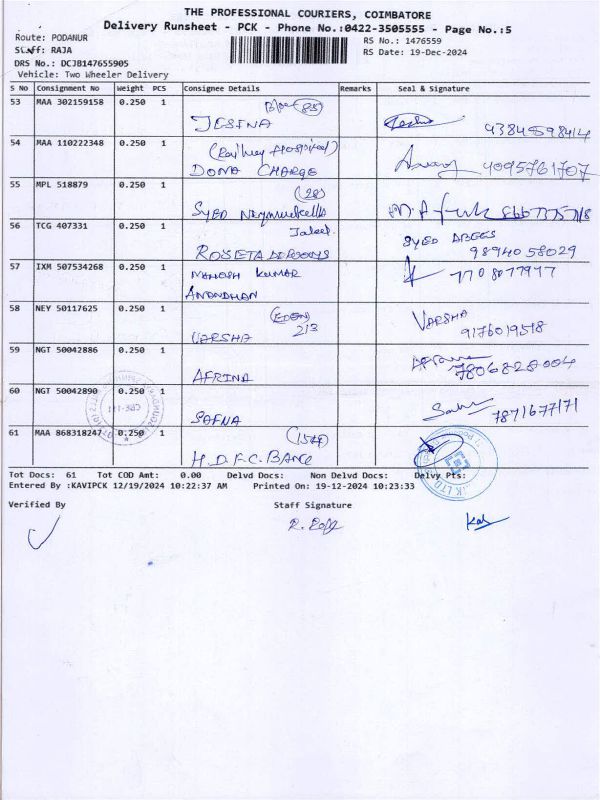 THE PROFESSIONAL COURIERS, COIMBATORE
Delivery Runsheet - PCK - Phone No.:0422-3505555 - Page No.:5
Route: PODANUR RS No.: 1476559
Staff: RAJA RS Date: 19-Dec-2024
DRS No.: DCJB147655905
Vehicle: Two Wheeler Delivery
S No Consignment No Weight PCS Consignee Details Remarks Seal & Signature
53 MAA 302159158 0.250 1 (85)
JESINA 9384598414
54 MAA 110222348 0.250 1 (Railway Hospital)
DONA CHARGE 4095761707
55 MPL 518879 0.250 1 (28)
Syed
56 TCG 407331 0.250 1 Jaleel
ROSSETA SYED ABEES
9894058029
57 IXM 507534268 0.250 1 MAHOSH KUMAR
ANANDHAN 7708077977
58 NEY 50117625 0.250 1 (EDEN)
213
VARSHA VARSHA
9176019518
59 NGT 50042886 0.250 1
AFRINA 7806828004
60 NGT 50042890 0.250 1
SAFNA 7871677171
61 MAA 868318247 0.250 1
H.D.F.C. BANK
Tot Docs: 61 Tot COD Amt: 0.00 Delvd Docs: Non Delvd Docs: Delvy Pts:
Entered By :KAVIPCK 12/19/2024 10:22:37 AM Printed On: 19-12-2024 10:23:33
Verified By Staff Signature